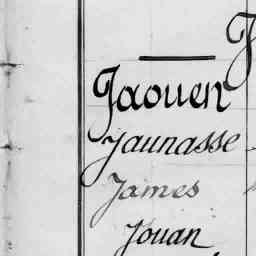 J
Jaouen
Jaunasse
James
Jouan